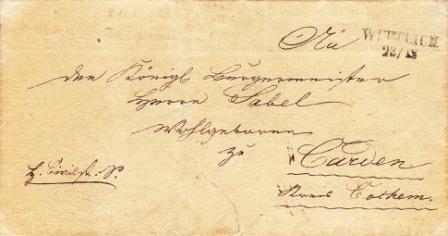 An
WITTLICH
23/12
den Königl Bürgermeister
Herrn Sabel
Wohlgeboren
zu
Carden
Kreis Cochem.